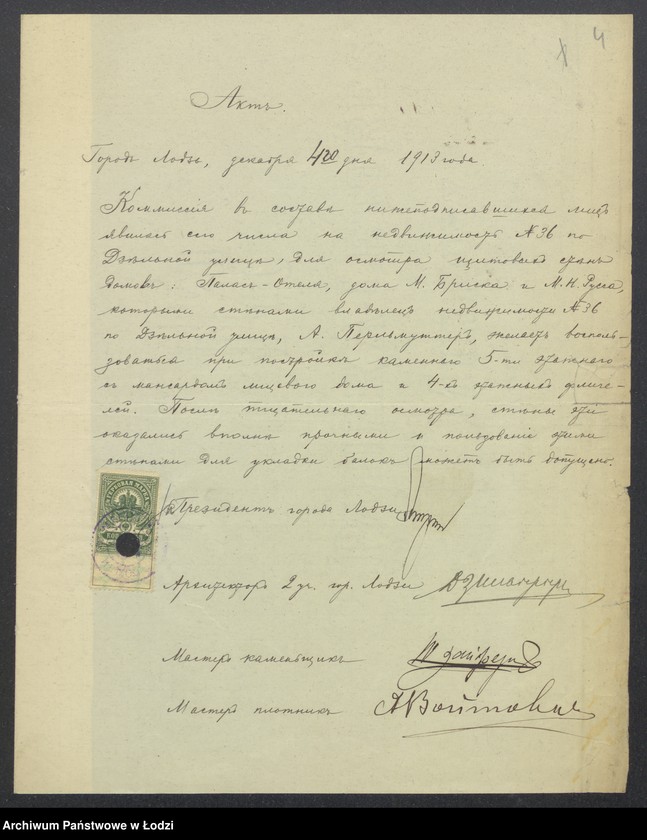 4
Актъ.
Городъ Лодзь, декабря 4го дня 1913 года.
Коммиссія въ составѣ нижеподписавшихся лицъ
явилась сего числа на недвижимость №36 по
Дзѣльной улицѣ, для осмотра щитовыхъ стѣнъ
домовъ: Паласъ-Отеля, дома М. Бриска и М. Н. Русса,
которыми стѣнами владѣлецъ недвижимости №36
по Дзѣльной улицѣ, А. Перльмуттеръ, желаетъ восполь-
зоваться при постройкѣ каменнаго 5-ти этажнаго
съ мансардомъ лицевого дома и 4-хъ этажныхъ флиге-
лей. Послѣ тщательнаго осмотра, стѣны эти
оказались вполнѣ прочными и пользованіе этими
стѣнами для укладки балокъ можетъ быть допущено.
Президентъ города Лодзи
ГЕРБОВАЯ МАРКА
Архитекторъ 2 уч. гор. Лодзи
Мастеръ каменьщикъ
Мастеръ плотникъ А Войтовичъ
Archiwum Państwowe w Łodzi